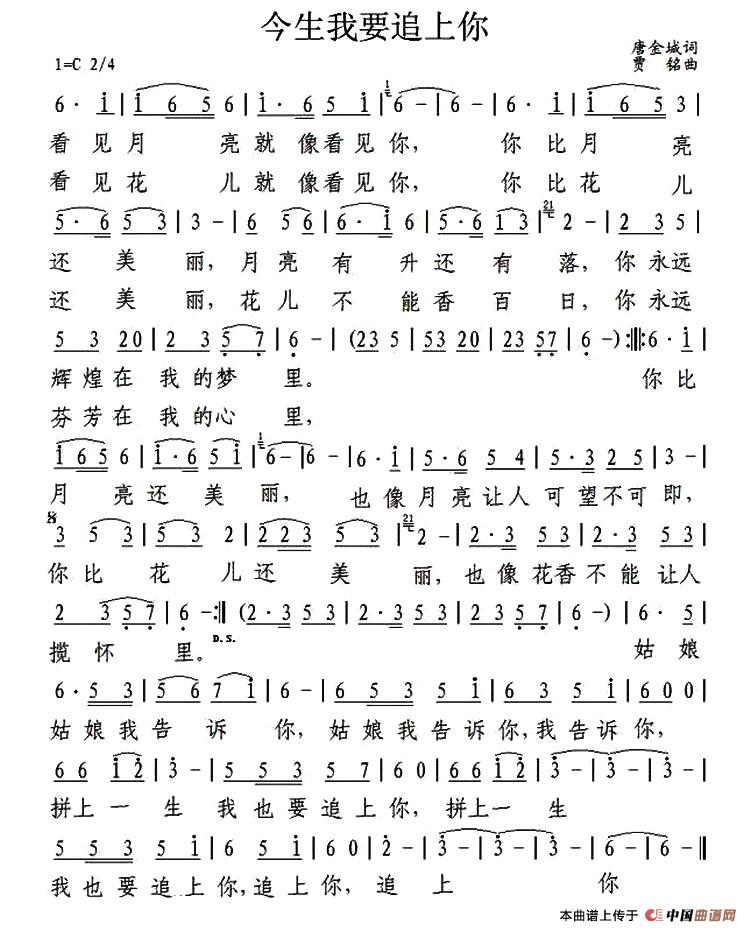 今生我要追上你
唐金城词
1=C 2/4
贾 铭曲
6· i | i 6 5 6 | i· 6 5 i | 6 - | 6 - | 6· i | i 6 5 3 |
看 见 月 亮 就 像 看 见 你， 你 比 月 亮
看 见 花 儿 就 像 看 见 你， 你 比 花 儿
5· 6 5 3 | 3 - | 6 5 6 | 6· i | 5· 6 1 3 | 2 - | 2 3 5 |
还 美 丽， 月 亮 有 升 还 有 落， 你 永 远
还 美 丽， 花 儿 不 能 香 百 日， 你 永 远
5 3 2 0 | 2 3 5 7 | 6 - | (23 5 | 53 20 | 23 57 | 6 -) :||: 6· i |
辉 煌 在 我 的 梦 里。 你 比
芬 芳 在 我 的 心 里，
i 6 5 6 | i· 6 5 i | 6 - | 6 - | 6· i | 5· 6 5 4 | 5· 3 2 5 | 3 - |
月 亮 还 美 丽， 也 像 月 亮 让 人 可 望 不 可 即，
3 5 3 | 5 3 2 | 2 2 3 5 3 | 2 - | 2· 3 5 3 | 2· 3 5 3 |
你 比 花 儿 还 美 丽， 也 像 花 香 不 能 让 人
2 3 5 7 | 6 - :|| (2· 3 5 3 | 2· 3 5 3 | 2 3 5 7 | 6 -) | 6· 5 |
揽 怀 里。 D.S. 姑 娘
6· 5 3 | 5 6 7 i | 6 - | 6 6 3 5 | 5 i | 6 5 3 5 i | 6 0 0 |
姑 娘 我 告 诉 你， 姑 娘 我 告 诉 你， 我 告 诉 你，
6 6 i 2 | 3 - | 5 5 3 5 7 | 6 0 | 6 6 i 2 | 3 - | 3 - |
拼 上 一 生 我 也 要 追 上 你， 拼 上 一 生
5 5 3 5 i | 6 5 i | 6 0 | 2 - | 3 - | 3 - | 6 - | 6 - ||
我 也 要 追 上 你， 追 上 你， 追 上 你
本曲谱上传于 中国曲谱网